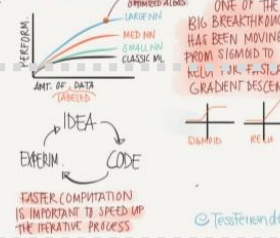 OPTIMIZED ALGOS
LARGE NN
MED NN
SMALL NN
CLASSIC ML
PERFORM.
AMT. OF DATA
LABELED
IDEA
EXPERIM.
CODE
FASTER COMPUTATION
IS IMPORTANT TO SPEED UP
THE ITERATIVE PROCESS
ONE OF THE
BIG BREAKTHROU
HAS BEEN MOVING
FROM SIGMOID TO
RELU FOR FASTER
GRADIENT DESCEN
SIGMOID
RELU
@TessFernande